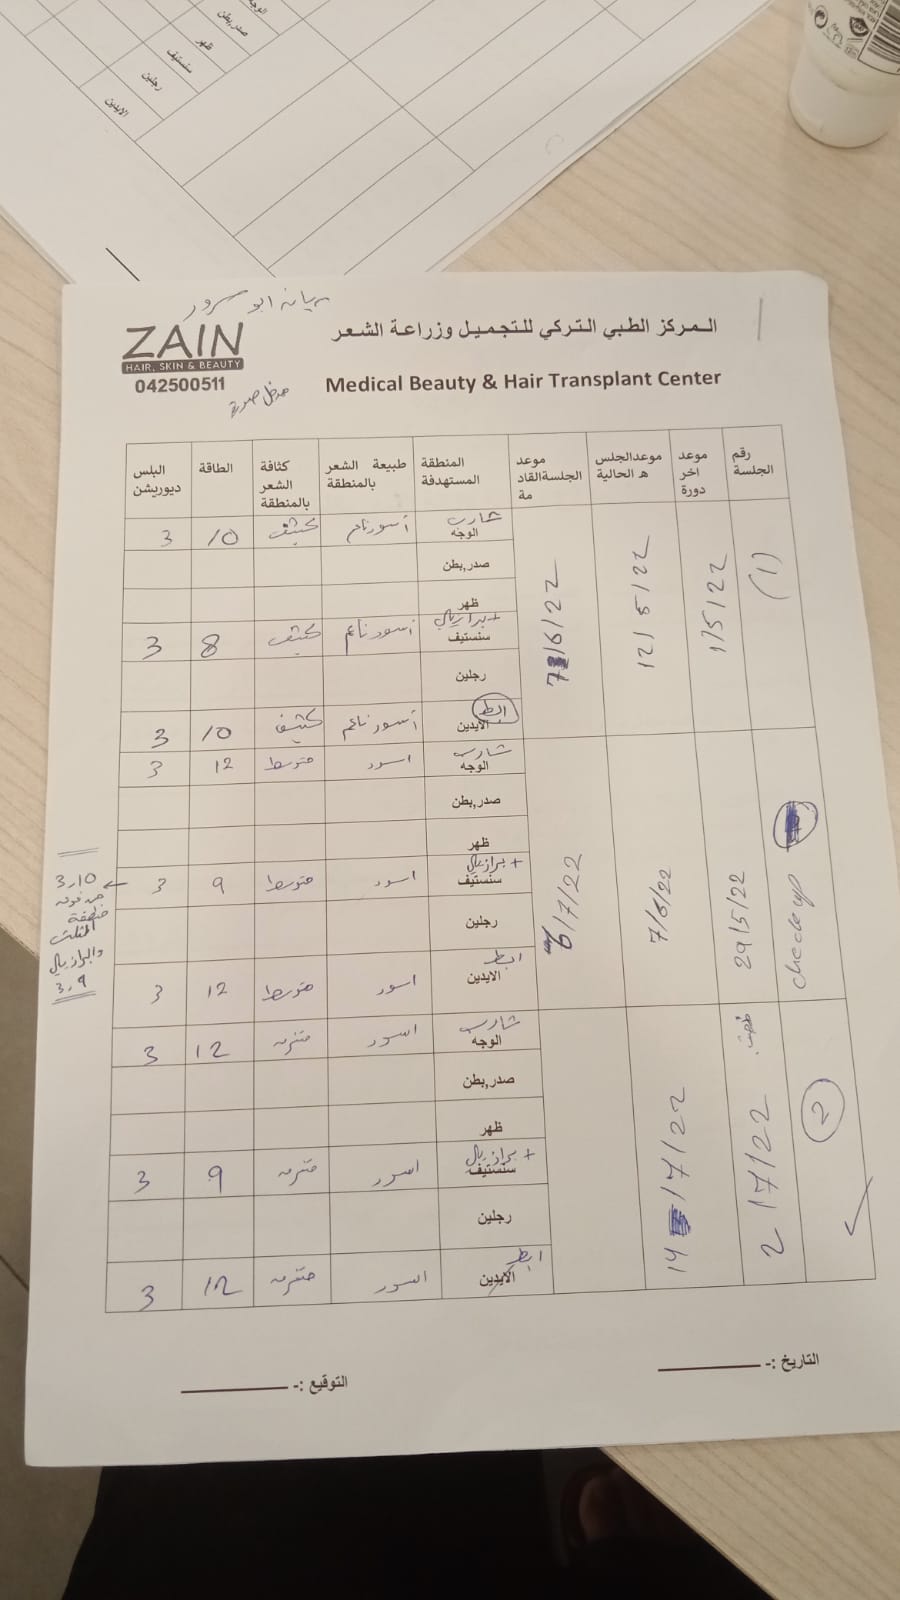 الوجه
صدر,بطن
ظهر
سنستيف
رجلين
الايدين
ابو سرور
المركز الطبي التركي للتجميل وزراعة الشعر
ZAIN
HAIR, SKIN & BEAUTY
042500511
Medical Beauty & Hair Transplant Center
رقم الجلسة
موعد اخر دورة
موعدالجلسه الحالية
موعد الجلسةالقادمة
المنطقة المستهدفة
طبيعة الشعر بالمنطقة
كثافة الشعر بالمنطقة
الطاقة
البلس ديوريشن
(1) 1/5/22 12/5/22 7/6/22
شارب الوجه أسود ناعم كثيف 10 3
صدر,بطن
ظهر
+ برازيلي سنستيف أسود ناعم كثيف 8 3
رجلين
ابط الايدين أسود ناعم كثيف 10 3
checkup 29/5/22 7/6/22 6/7/22
شارب الوجه اسود متوسط 12 3
صدر,بطن
ظهر
+ برازيلي سنستيف اسود متوسط 9 3
3,10
منطقة
المثلث
والبرازيلي
3,9
رجلين
ابط الايدين اسود متوسط 12 3
2 2/7/22 14/7/22
شارب الوجه اسود 12 3
صدر,بطن
ظهر
+ برازيلي سنستيف اسود 9 3
رجلين
ابط الايدين اسود 12 3
التاريخ :-
التوقيع :-